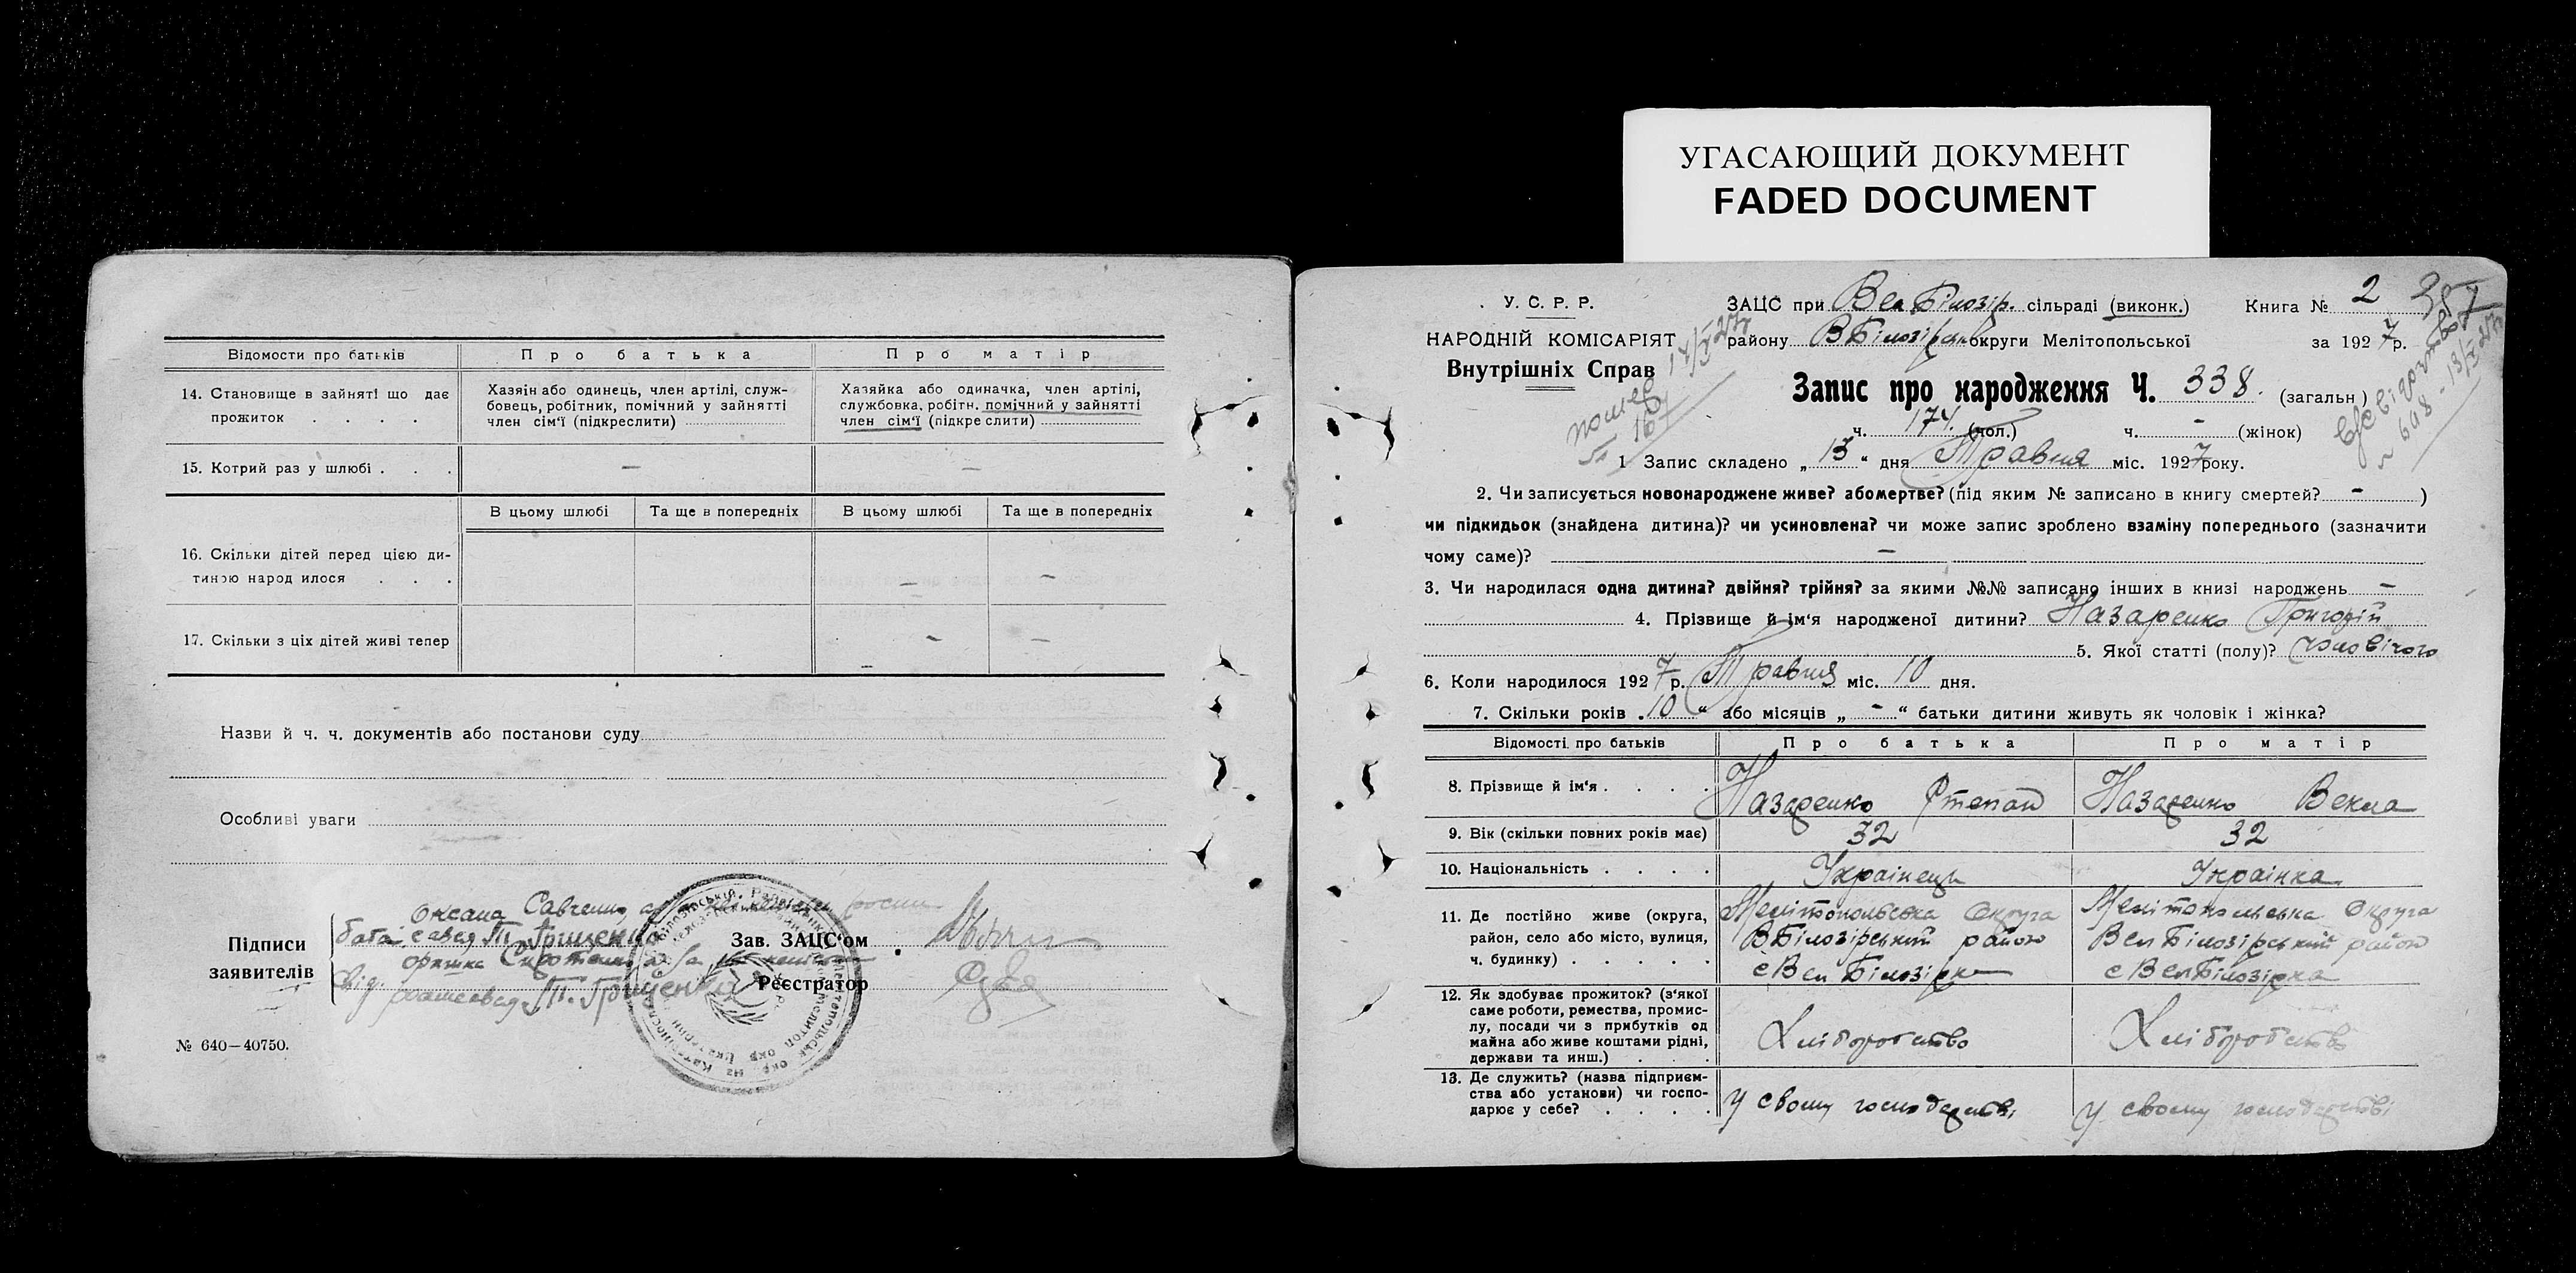 УГАСАЮЩИЙ ДОКУМЕНТ
FADED DOCUMENT
Відомости про батьків
Про батька
Про матір
14. Становище в зайняті що дає прожиток . . . .
Хазяїн або одинець, член артілі, служ-
бовець, робітник, помічний у зайнятті
член сім'ї (підкреслити)
Хазяйка або одиначка, член артілі,
службовка, робітн. помічний у зайнятті
член сім'ї (підкреслити)
15. Котрий раз у шлюбі . . .
—
—
В цьому шлюбі
Та ще в попередніх
В цьому шлюбі
Та ще в попередніх
16. Скільки дітей перед цією ди-
тиною народ илося . . .
— —
17. Скільки з ціх дітей живі тепер
— —
—
Назви й ч. ч. документів або постанови суду
Особливі уваги
Підписи
заявителів
Оксана Савченко
Т. Грищенко
Т. Грищенко
Зав. ЗАЦС'ом
Реєстратор
№ 640—40750.
У. С. Р. Р.
НАРОДНІЙ КОМІСАРІЯТ
Внутрішніх Справ
ЗАЦС при Вел Білозір. сільраді (виконк.)
Книга № 2
району ВБілозірськ округи Мелітопольської
за 1927 р.
Запис про народження Ч. 338. (загальн)
ч. 174. (чол.) ч. - (жінок)
1 Запис складено „ 13 “ дня Травня міс. 1927 року.
2. Чи записується новонароджене живе? або мертве? (під яким № записано в книгу смертей? - )
чи підкидьок (знайдена дитина)? чи усиновлена? чи може запис зроблено взаміну попереднього (зазначити
чому саме)? —
3. Чи народилася одна дитина? двійня? трійня? за якими №№ записано інших в книзі народжень -
4. Прізвище й ім'я народженої дитини? Назаренко Григорій
5. Якої статті (полу)? чоловічого
6. Коли народилося 1927 р. Травня міс. 10 дня.
7. Скільки років „ 10 “ або місяців „ - “ батьки дитини живуть як чоловік і жінка?
Відомості про батьків
Про батька
Про матір
8. Прізвище й ім'я . . . .
Назаренко Степан
Назаренко Векла
9. Вік (скільки повних років має)
32
32
10. Національність . . . .
Українець
Українка
11. Де постійно живе (округа,
район, село або місто, вулиця,
ч. будинку) . . . . .
Мелітопольська Округа
ВБілозірський район
с Вел Білозірка
Мелітопольська Округа
Вел Білозірський район
с Вел Білозірка
12. Як здобуває прожиток? (з'якої
саме роботи, ремества, промис-
лу, посади чи з прибутків од
майна або живе коштами рідні,
держави та инш.) . . .
Хліборобство
Хліборобство
13. Де служить? (назва підприєм-
ства або установи) чи госпо-
дарює у себе? . . . .
У своему господарстві
У своему господарстві